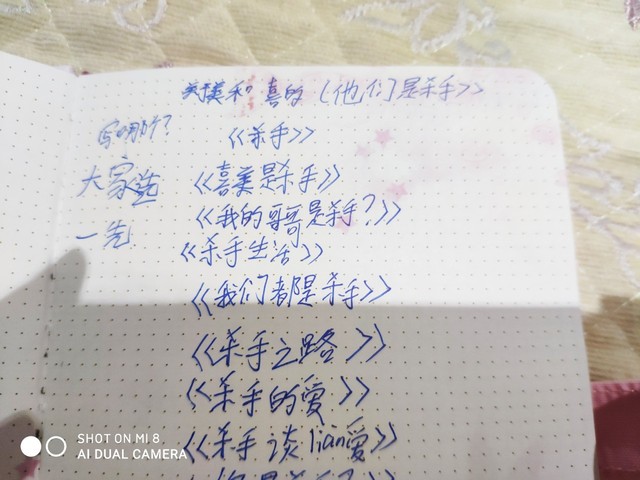 美和喜的《他们是杀手》
写哪个?
《杀手》
大家选
《喜美是杀手》
《我的哥哥是杀手?》
一先
《杀手生活》
《我们都是杀手》
《杀手之路》
《杀手的爱》
《杀手谈lian爱》
SHOT ON MI 8
AI DUAL CAMERA